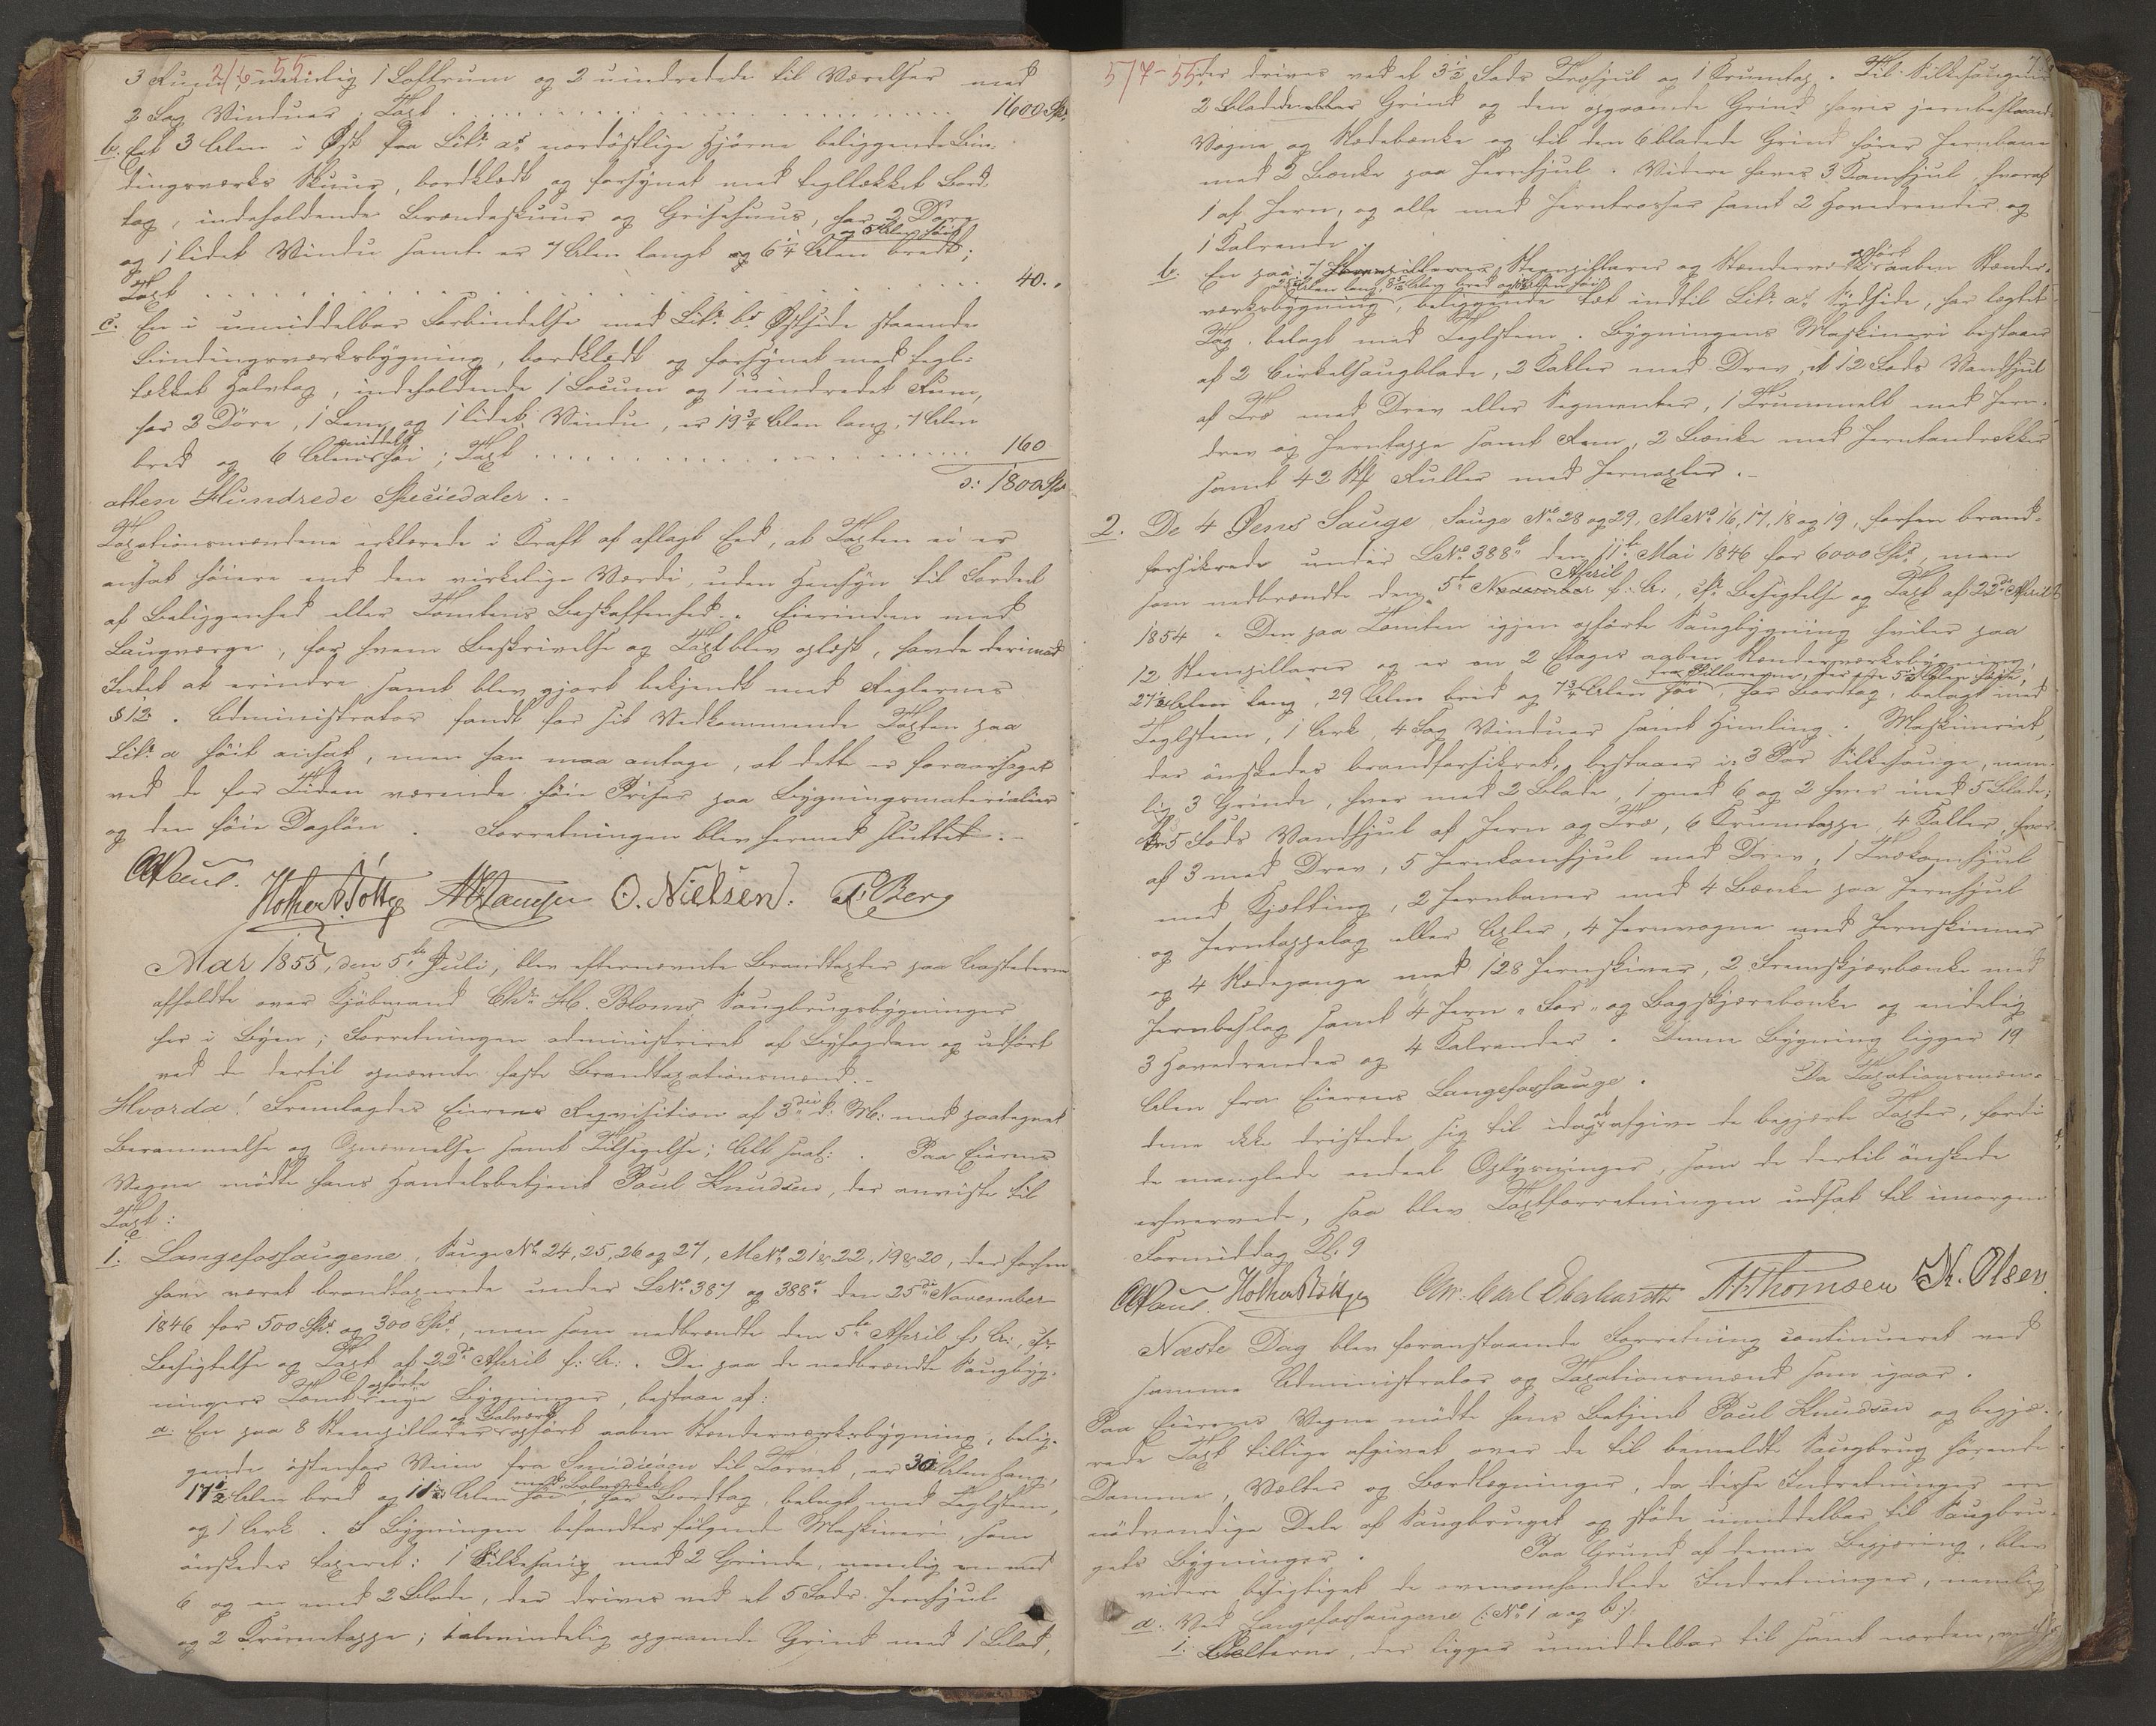 2/6-55
3 Rum, nemlig 1 Loftrum og 2 uindredede til Værelser med
2 Fag Vinduer, Taxt . . . . . . 1600 Spd.
b. Et 3 Alen i Øst fra Litr. a's nordøstlige Hjørne beliggende Bin-
dingsværks Skuur, bordklædt og forsynet med tegltækket Bord-
tag, indeholdende Brændeskuur og Grisehuus, har 2 Døre
og 1 lidet Vindu samt er 7 Alen langt og 6 1/4 Alen bredt; og 5 Alen høit
Taxt . . . . . . 40. "
c. En i umiddelbar Forbindelse med Litr. b's Østside staaende
Bindingsværksbygning, bordklædt og forsynet med tegl-
tækket Halvtag, indeholdende 1 Locum og 1 uindredet Rum,
har 3 Døre, 1 Lem og 1 lidet Vindu, er 19 3/4 Alen lang, 7 Alen
bred og 6 Alen middels høi; Taxt . . . . . . 160
: 1800 Spd
atten Hundrede Speciedaler. -
Taxationsmændene erklærede i Kraft af aflagt Eed, at Taxten ei er
ansat høiere end den virkelige Værdi, uden Hensyn til Fordeel
af Beliggenhed eller Tomtens Beskaffenhed. Eierinden med
Laugværge, for hvem Beskrivelse og Taxt blev oplæst, havde derimod
Intet at erindre samt blev gjort bekjendt med Reglernes
§ 12. Administrator fandt for sit Vedkommende Taxten paa
Litr. a høit ansat, men han maa antage, at dette er foraarsaget
ved de for Tiden værende høie Priser paa Bygningsmaterialier
og den høie Dagløn. Forretningen blev hermed sluttet. -
O. Nielsen. F. Berg
Aar 1855, den 5te Juli, blev efternævnte Brandtaxter paa Aastederne
afholdte over Kjøbmand Chr. H. Bloms Saugbrugsbygninger
her i Byen; Forretningen administreret af Byfogden og udført
ved de dertil opnævnte faste Brandtaxationsmænd. -
Hvorda! Fremlagdes Eierens Reqvisition af 3die d: M: med paategnet
Berammelse og Opnævnelse samt Tilsigelse; Alt saal: . Paa Eierens
Vegne mødte hans Handelsbetjent Paul Knudsen, der anviste til
Taxt:
1. Langefossaugene, Sauge No 24, 25, 26 og 27, M.No 21 & 22, 19 & 20, der forhen
have været brandtaxerede under L.No 387 og 388a den 25de November
1846 for 500 Spd. og 300 Spd., men som nedbrændte den 5te April f. A., cfr.
Besigtelse og Taxt af 22de April f. A: . De paa de nedbrændte Saugbyg-
ningers Tomt opførte nye Bygninger, bestaae af:
a. En paa 8 Steenpillarer og Bolværk opført aaben Stænderværksbygning, belig-
gende østenfor Veien fra Smidieøen til Torvet, er 30 Alen lang,
17 1/2 Alen bred og 11 1/2 Alen høi med Bolværket, har Bordtag, belagt med Teglsteen,
og 1 Ark. I Bygningen befandtes følgende Maskineri, som
ønskedes taxeret: 1 Silkesaug med 2 Grinde, nemlig en med
6 og en med 2 Blade, der drives ved et 5 Fods Jernhjul
og 2 Krumtappe; 1 almindelig opgaaende Grind med 1 Blad,
5/7-55
der drives ved et 3 1/2 Fods Træhjul og 1 Krumtap. Til Silkesaugens
2 Blad Grind og den opgaaende Grind haves jernbeslaaede
Vogne og Stødebænke og til den 6bladede Grind hører Jernbane
med 2 Bænke paa Jernhjul. Videre haves 3 Kamhjul, hvoraf
1 af Jern, og alle med Jerntrosser samt 2 Hovedrender og
1 Kalrende.
b. En paa 7 Steenpillarer og Stænderværk opført aaben Stænder-
værksbygning, beliggende tæt indtil Litr. a's Sydside, har lagtet
Tag, belagt med Teglsteen. Bygningens Maskineri bestaaer
af 2 Cirkelsaugblade, 2 Kaller med Drev, et 12 Fods Vandhjul
af Træ med Drev eller Segmenter, 1 Trummelt med Jern-
drev og Jerntappe samt Rem, 2 Bænke med Jerntandrækker
samt 42 Stk Ruller med Jernaxler. -
2. De 4 Øens Sauge, Sauge No 28 og 29, M.No 16, 17, 18 og 19, forhen brand-
forsikrede under L.No 388b den 11te Mai 1846 for 6000 Spd., men
som nedbrændte den 5te April f. A:, cfr. Besigtelse og Taxt af 22de April
1854. Den paa Tomten igjen opførte Saugbygning hviler paa
12 Steenpillarer og er en 2 Etages aaben Stænderværksbygning,
27 1/2 Alen lang, 29 Alen bred og 7 3/4 Alen høi fra Pillarerne, der ere 5 1/2 Alen høie, har Bordtag, belagt med
Teglsteen, 1 Ark, 4 Fag Vinduer samt Himling. Maskineriet,
der ønskedes brandforsikret, bestaaer i: 3 Par Silkesauge, nem-
lig 3 Grinde, hver med 2 Blade, 1 med 6 og 2 hver med 5 Blade;
5 Fods Vandhjul af Jern og Træ, 6 Krumtappe, 4 Kaller, hvor-
af 3 med Drev, 5 Jernkamhjul med Drev, 1 Trækamhjul
med Kjetting, 2 Jernbaner med 4 Bænke paa Jernhjul
og Jerntappelag eller Axler, 4 Jernvogne med Jernskinner
og 4 Stødegange med 128 Jernskiver, 2 Fremskjærbænke med
Jernbeslag samt 4 Jern-For- og Bagskjærebænke og endelig
3 Hovedrender og 4 Kalrender. Denne Bygning ligger 19
Alen fra Eierens Langefossauge. Da Taxationsmæn-
dene ikke dristede sig til idag at afgive de begjærte Taxter, fordi
de manglede endeel Oplysninger, som de dertil ønskede
erhvervede, saa blev Taxtforretningen udsat til imorgen
Formiddag Kl. 9
Chr. Carl Eberhardt H. Thomsen K. Olsen.
Næste Dag blev foranstaaende Forretning continueret ved
samme Administrator og Taxationsmænd som igaar.
Paa Eierens Vegne mødte hans Betjent Paul Knudsen og begjæ-
rede Taxt tillige afgivet over de til bemeldte Saugbrug hørende
Damme, Velter og Bordlægninger, da disse Indretninger ere
nødvendige Dele af Saugbruget og støde umiddelbar til Saugbru-
gets Bygninger. Paa Grund af denne Begjæring, blev
videre besigtiget de ovenomhandlede Indretninger, nemlig
a. Ved Langefossaugene (: No 1 a og b :)
1. Velterne, der ligger umiddelbar til samt norden,